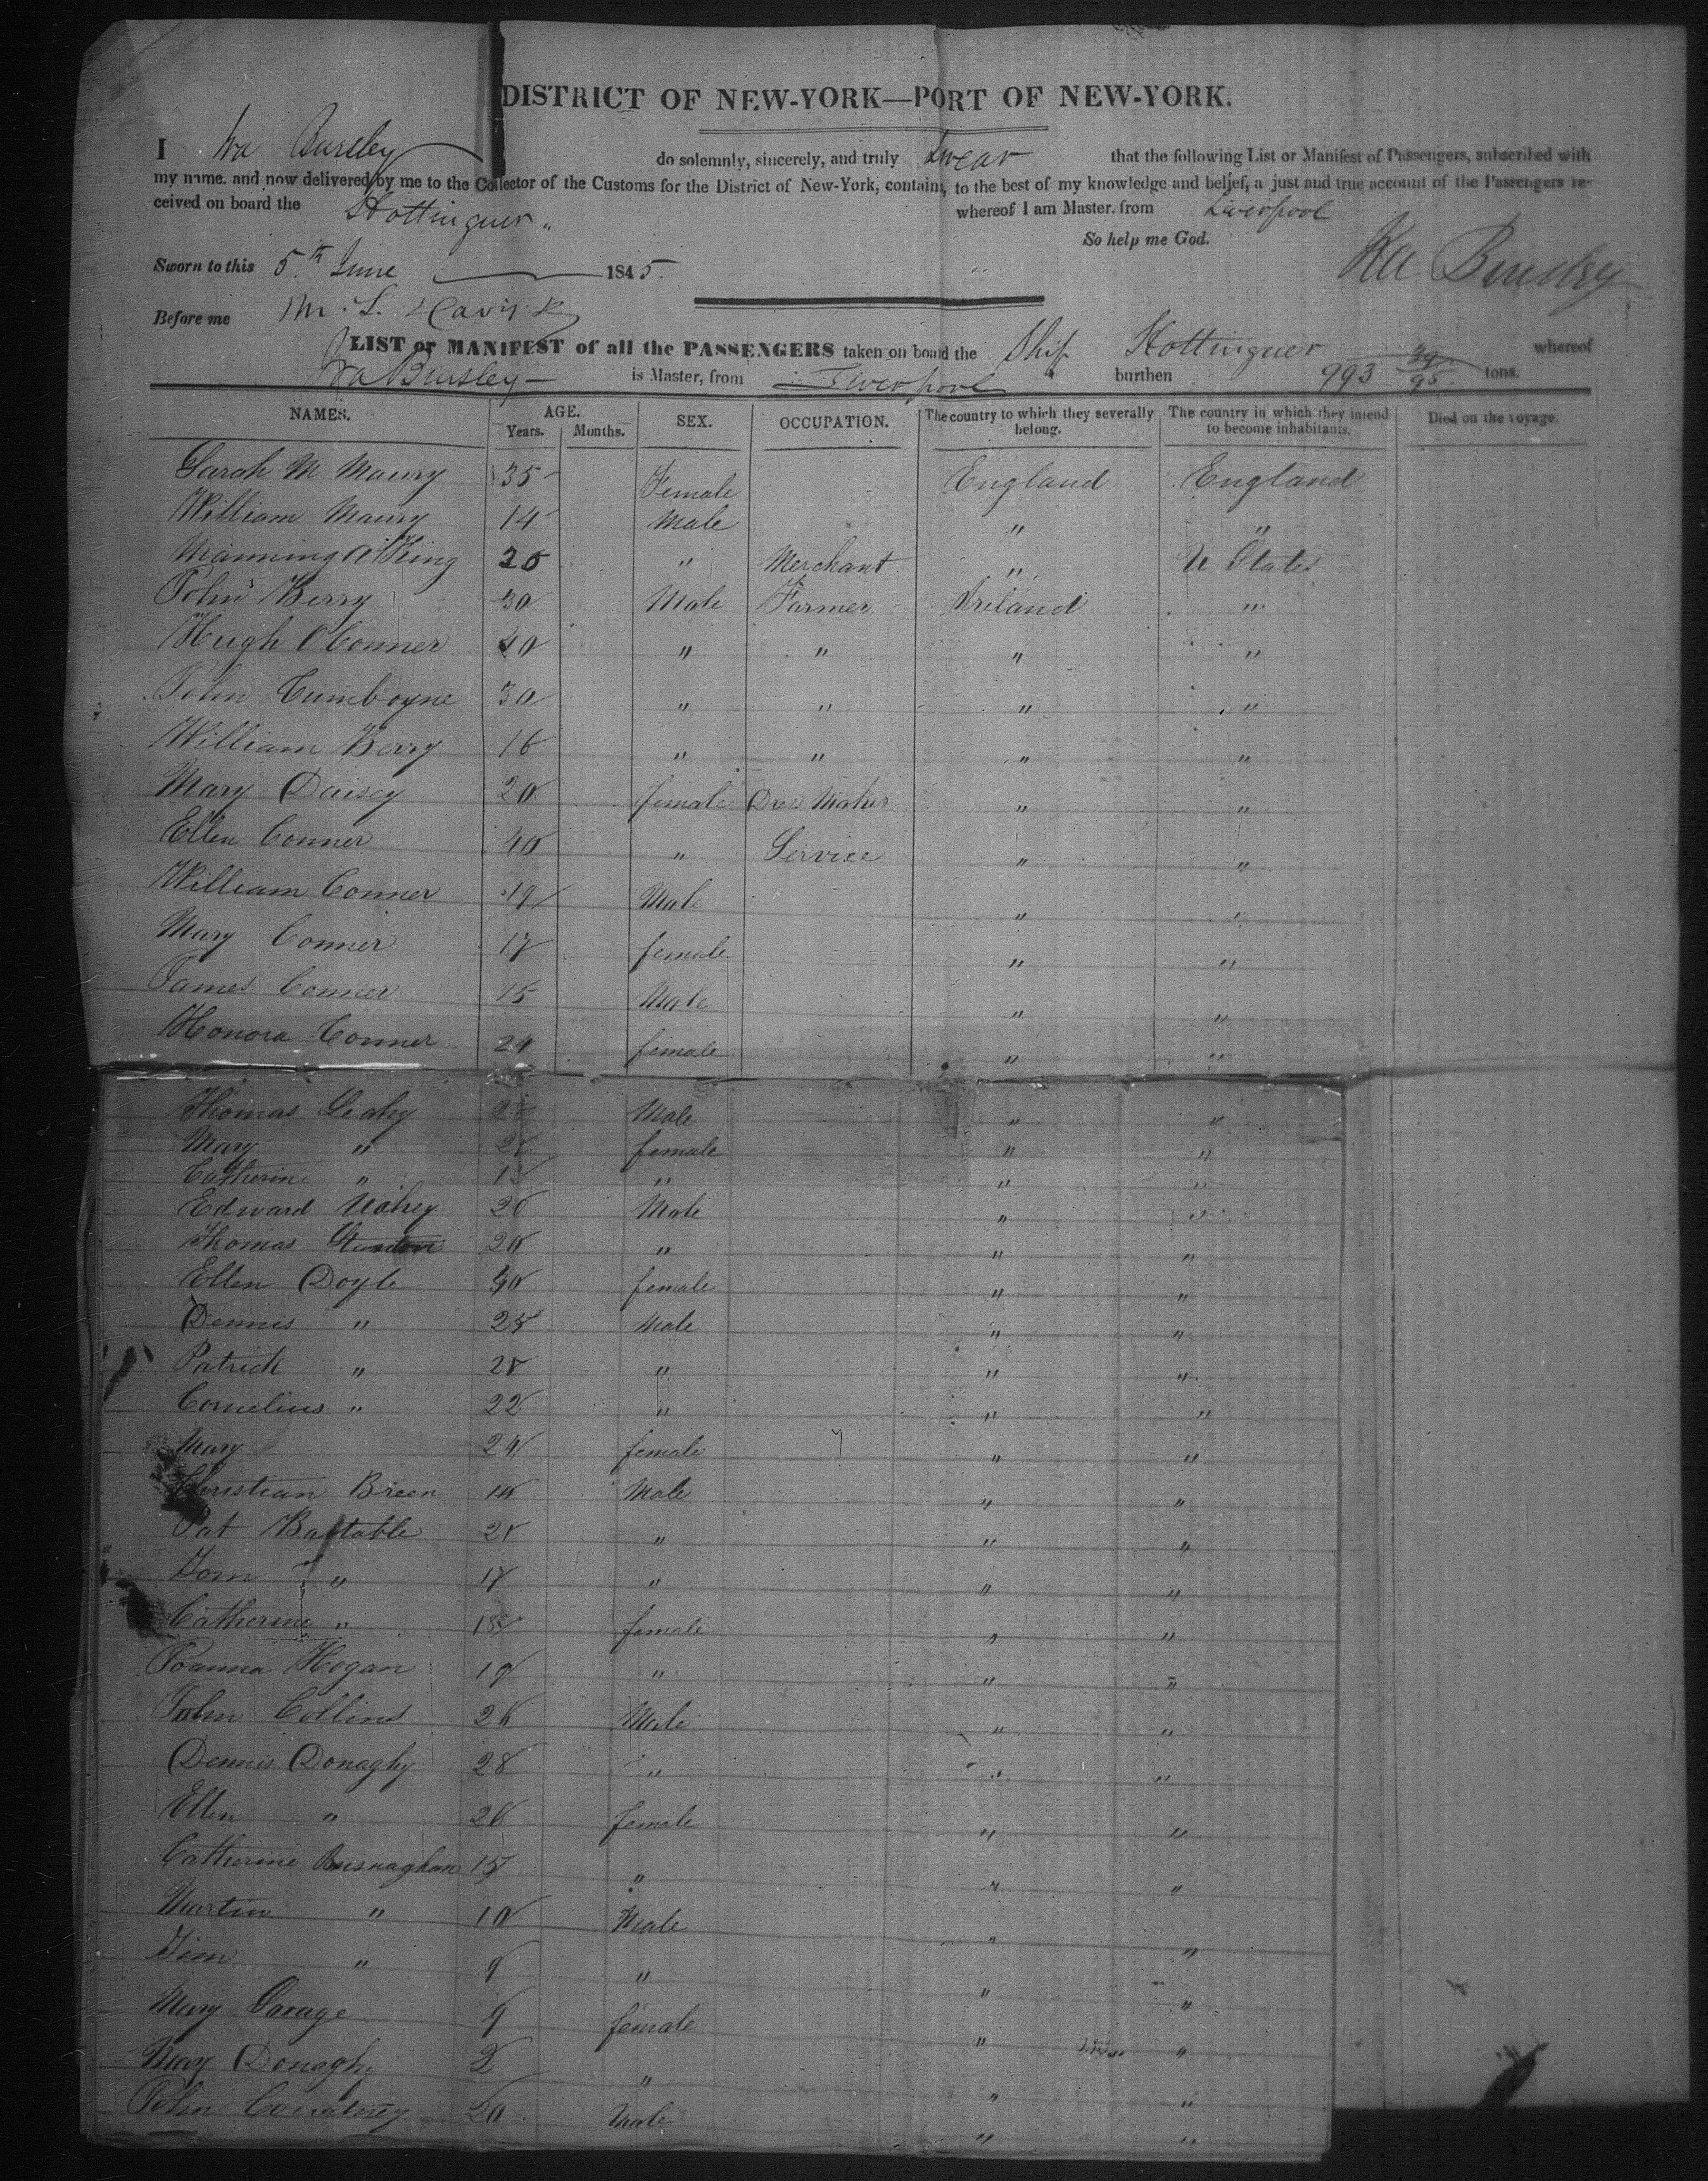 DISTRICT OF NEW-YORK—PORT OF NEW-YORK.
I Ira Bursley do solemnly, sincerely, and truly Swear that the following List or Manifest of Passengers, subscribed with
my name. and now delivered by me to the Collector of the Customs for the District of New-York, contains, to the best of my knowledge and belief, a just and true account of the Passengers re-
ceived on board the Hottinguer whereof I am Master. from Liverpool
So help me God.
Sworn to this 5th June 1845. Ira Bursley
Before me M. L. Davis
LIST or MANIFEST of all the PASSENGERS taken on board the Ship Hottinguer whereof
Ira Bursley is Master, from Liverpool burthen 993 39/95 tons.
NAMES. AGE. SEX. OCCUPATION. The country to which they severally belong. The country in which they intend to become inhabitants. Died on the voyage.
Years. Months.
Sarah M Maury 35 Female England England
William Maury 14 Male " "
Manning A King 25 " Merchant " U States
John Berry 30 Male Farmer Ireland "
Hugh OConner 40 " " " "
John Cumboyne 30 " " " "
William Berry 16 " " " "
Mary Daisey 20 female Dress Maker " "
Ellen Conner 40 " Service " "
William Conner 19 Male " "
Mary Conner 17 female " "
James Conner 15 Male " "
Honora Conner 24 female " "
Thomas Leahy Male " "
Mary " female " "
Catherine " " " "
Edward 20 Male " "
Thomas 20 " " "
Ellen Doyle female " "
Dennis " 25 Male " "
Patrick " " " "
Cornelius " 22 " " "
Mary 24 female " "
Christian Breen Male " "
Pat Bastable " " "
Tom " " " "
Catherine " 18 female " "
Joanna Hogan 19 " " "
John Collins 26 Male " "
Dennis Donaghy 28 " " "
Ellen " 26 female " "
Catherine Busnaghan 15 " " "
Martin " 10 Male " "
Jim " " " "
Mary 9 female " "
Mary Donaghy 2 " " "
John Courtney 20 Male " "